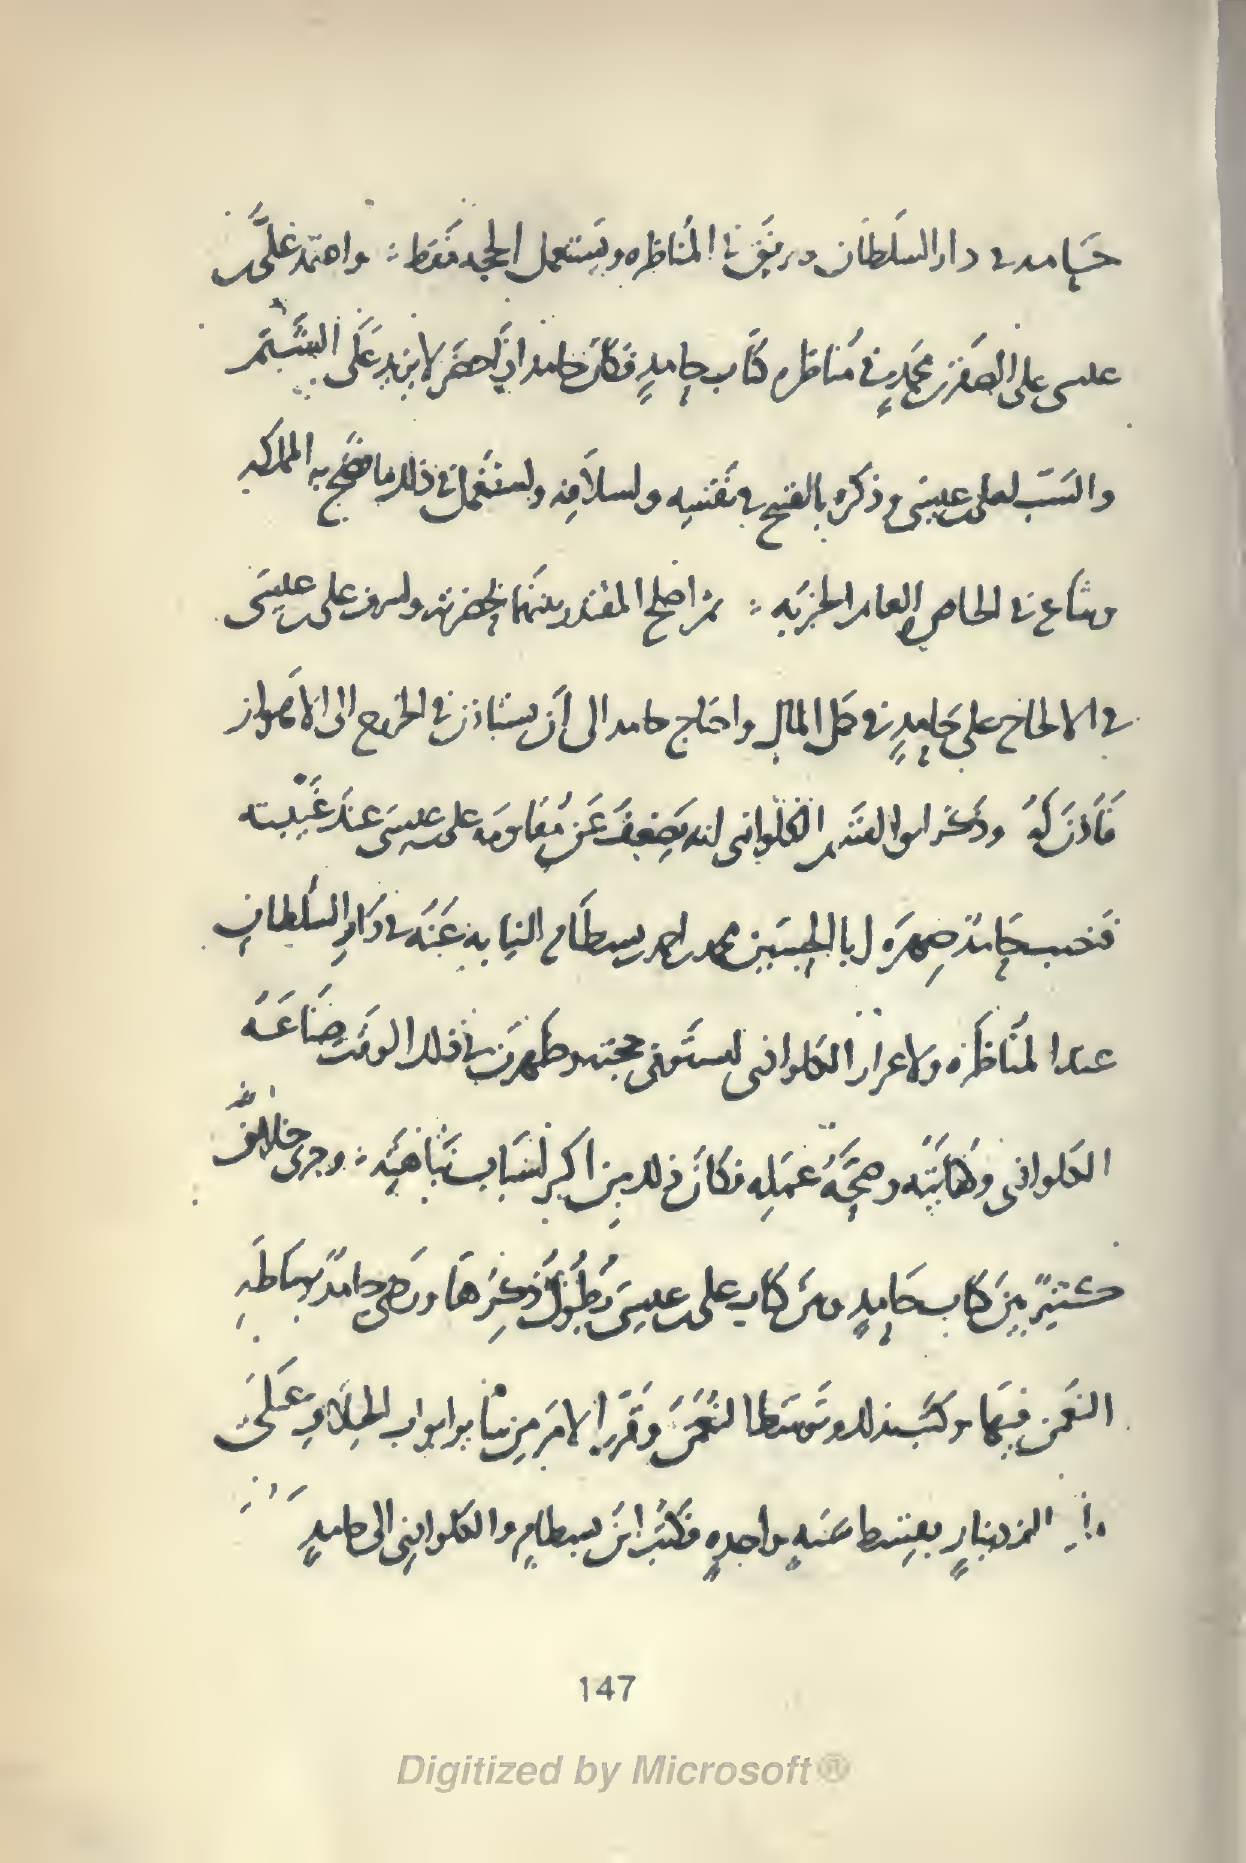 حامد في دار السلطان ويرفق في المناظره ويستعمل الحجه فقط : واعتمد على بن
عيسى على الصقر بن محمد في مناظره كتاب حامدٍ فكان حامد اذا حضر لا يزيد على الشتم
والسب لعلى بن عيسى وذكره بالقبيح في نفسه ولسلافه ولستعمل في ذلك ما فضح به المملكه
وشاع في الخاص والعام الخبر به : ثم اصلح المقتدر بينهما بحضرته واسرف على بن عيسى
في الالحاح على حامدٍ في حمل المال واحتاج حامد الى أن يستاذن في الخروج الى الاهواز
فأذن له وذكر ابوا القسم الكلواذى انه يضعف عن مقاومه على بن عيسى عند غيبته
فنصب حامدٌ صهره ابا الحسين محمد بن احمد بن بسطام النيابه عنه في دار السلطان
عند المناظره ولاعزاز الكلواذى ليستوفى حجته وظهرت في ذلك الوقت صناعه
الكلواذى وكفايته وصحه عمله فكان ذلك من اكبر اسباب نباهته : وجرى خلائق
كثيرٌ بين كتاب حامدٍ وبين كتاب على بن عيسى يطول ذكرها ورضى حامدٌ بوساطه
النعمن فيها وكتب بذلك وتوسطها النعمن وقرر الامر من سائر ابواب الخلاف على
الف دينارٍ بقسط سنهٍ واحدهٍ فكتب ابن بسطامٍ والكلواذى الى حامدٍ
147
Digitized by Microsoft®